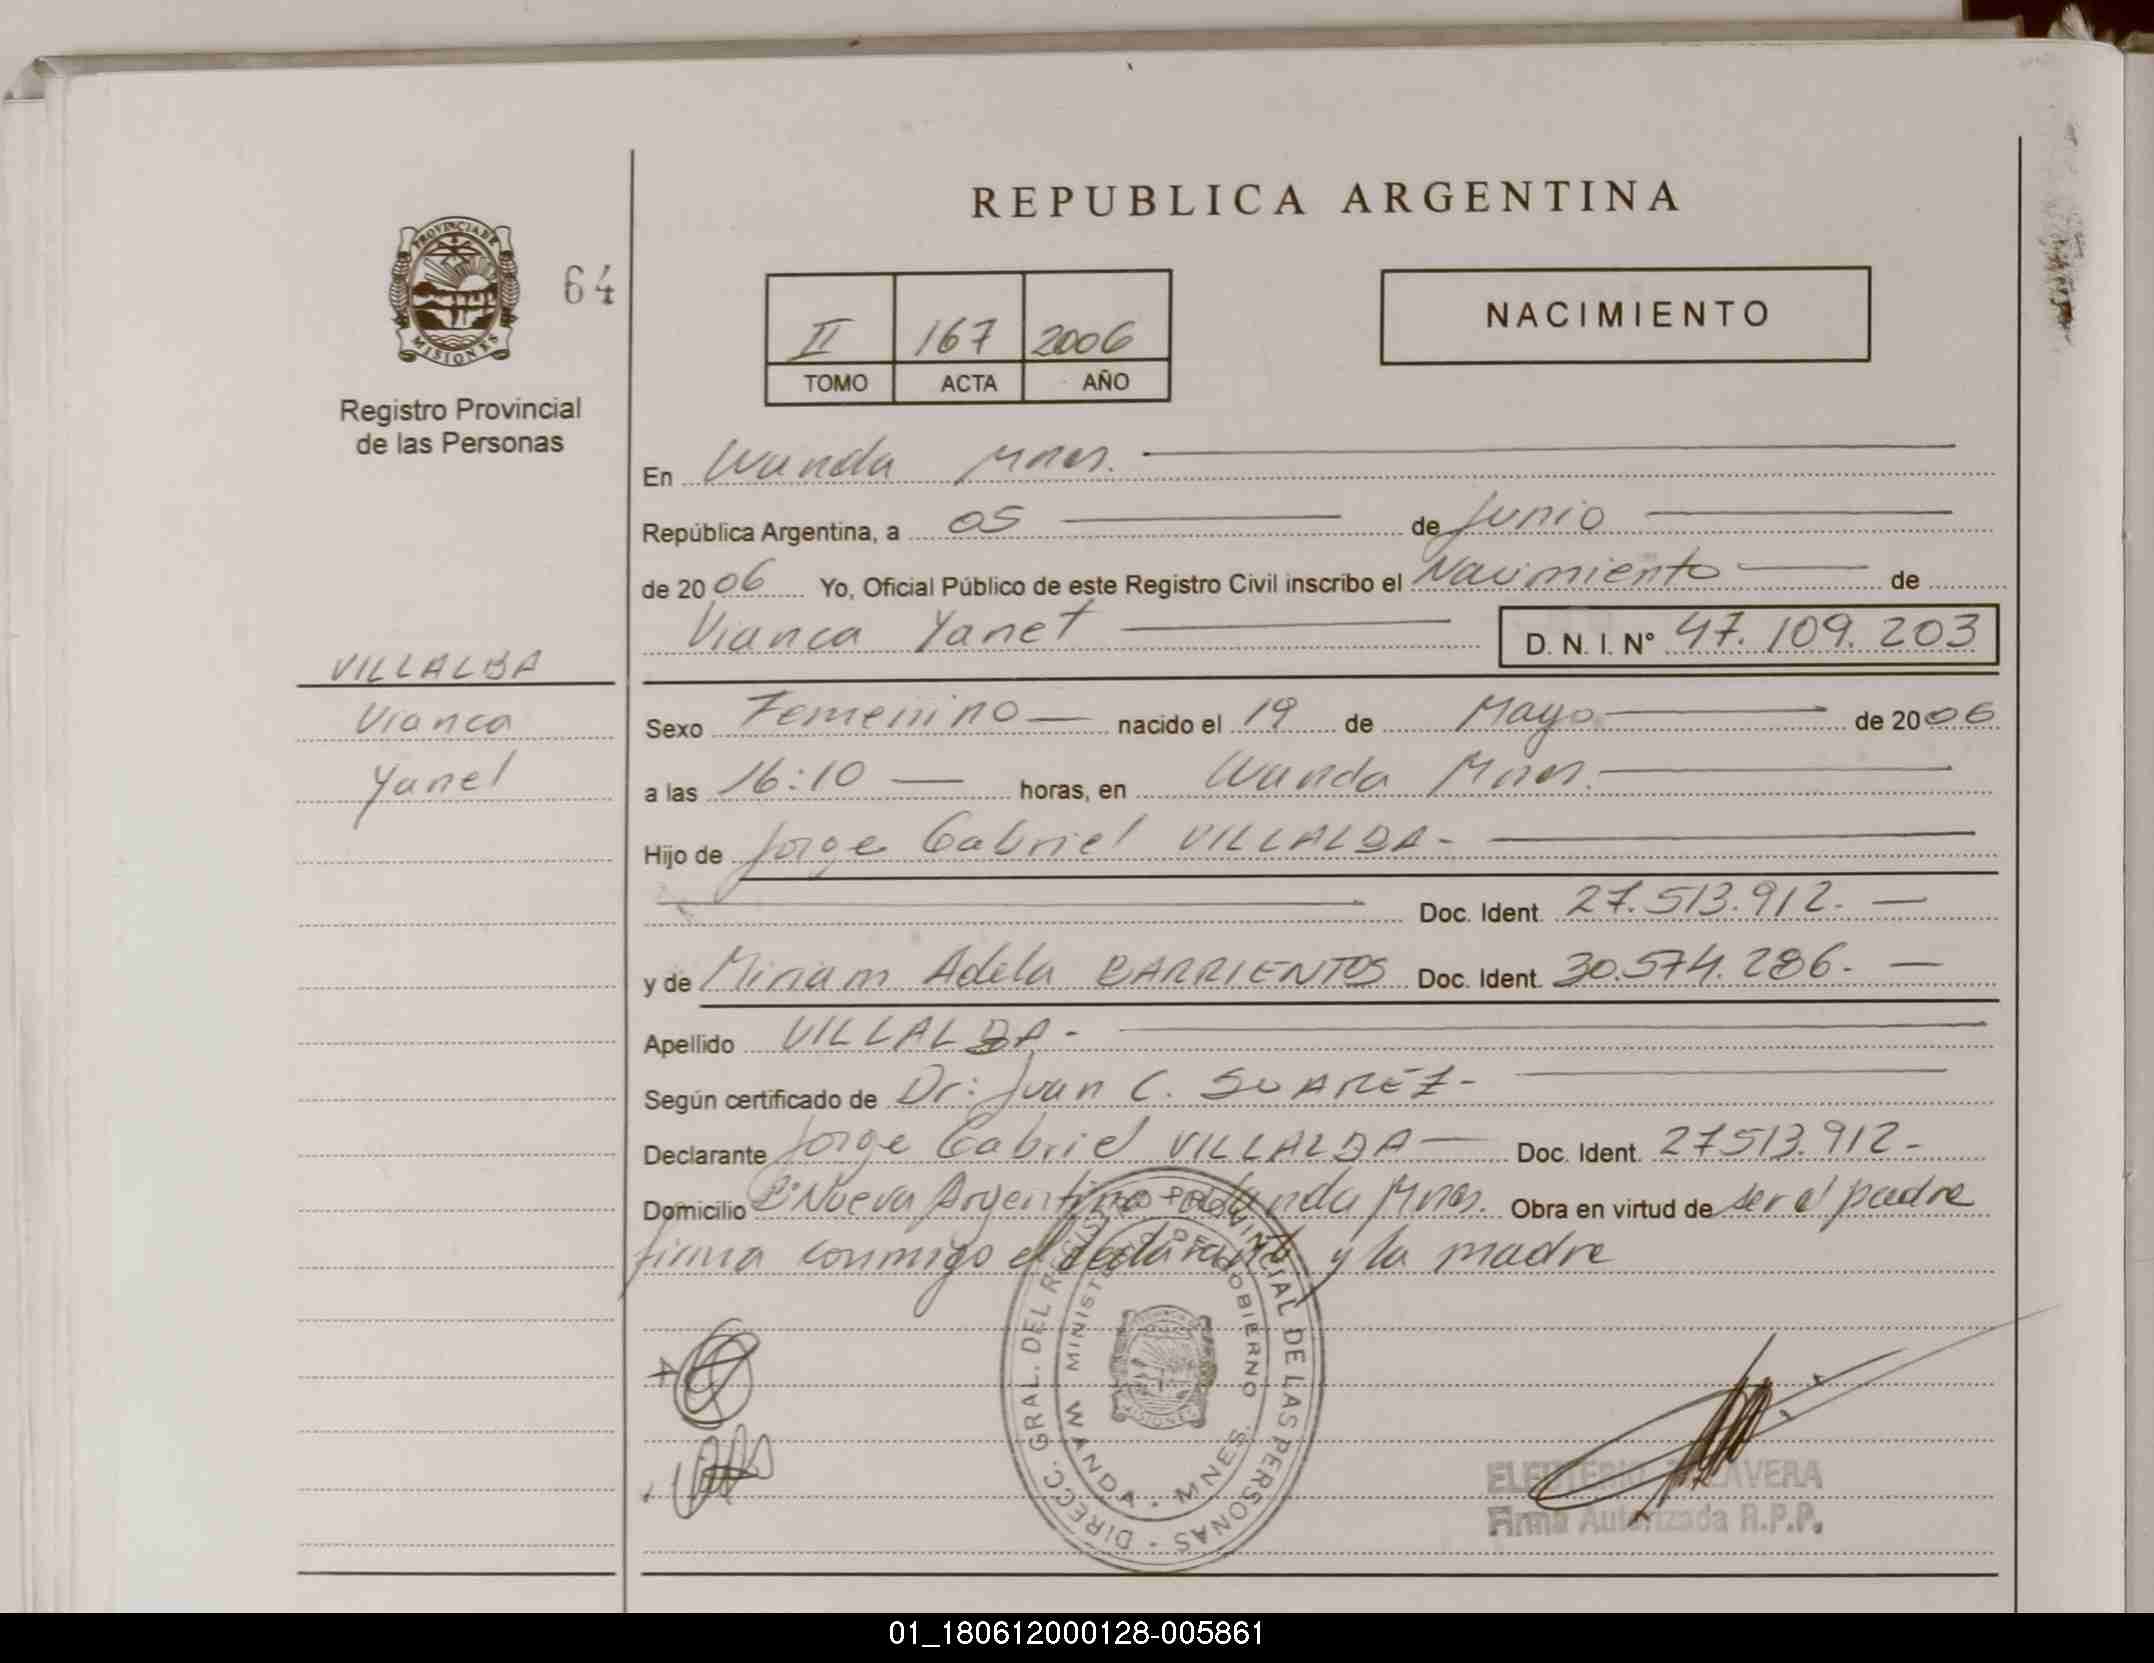 REPUBLICA ARGENTINA
PROVINCIA DE
MISIONES
64
II 167 2006
TOMO ACTA AÑO
NACIMIENTO
Registro Provincial
de las Personas
En Wanda Mnes.
República Argentina, a 05 de Junio
de 2006 Yo, Oficial Público de este Registro Civil inscribo el Nacimiento de
Vianca Yanet D. N. I. N° 47.109.203
VILLALBA
Vianca
Yanet
Sexo Femenino nacido el 19 de Mayo de 2006
a las 16:10 horas, en Wanda Mnes.
Hijo de Jorge Gabriel VILLALBA-
Doc. Ident. 27.513.912.
y de Miriam Adela BARRIENTOS Doc. Ident. 30.574.286.
Apellido VILLALBA-
Según certificado de Dr: Juan C. SUAREZ-
Declarante Jorge Gabriel VILLALBA Doc. Ident. 27513.912-
Domicilio B° Nueva Argentina Wanda Mnes. Obra en virtud de ser el padre
firma conmigo el declarante y la madre
DIRECC. GRAL. DEL REGISTRO PROVINCIAL DE LAS PERSONAS
MINISTERIO DE GOBIERNO
WANDA - MNES.
MISIONES
ELEUTERIO TALAVERA
Firma Autorizada R.P.P.
01_180612000128-005861